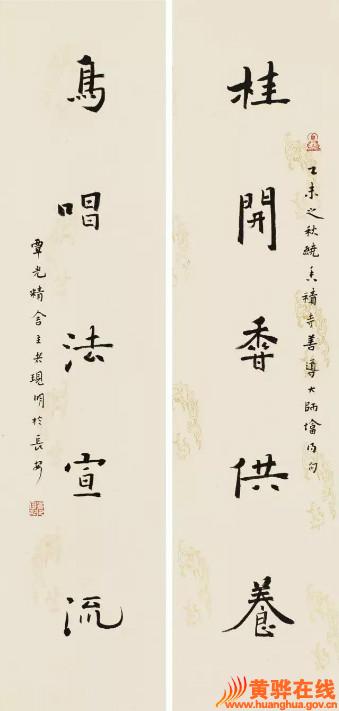 乙未之秋繞香積寺善導大師墖得句
桂開香供養
鳥唱法宣流
覃光精舍主者現明於長安
黄骅在线
www.huanghua.gov.cn